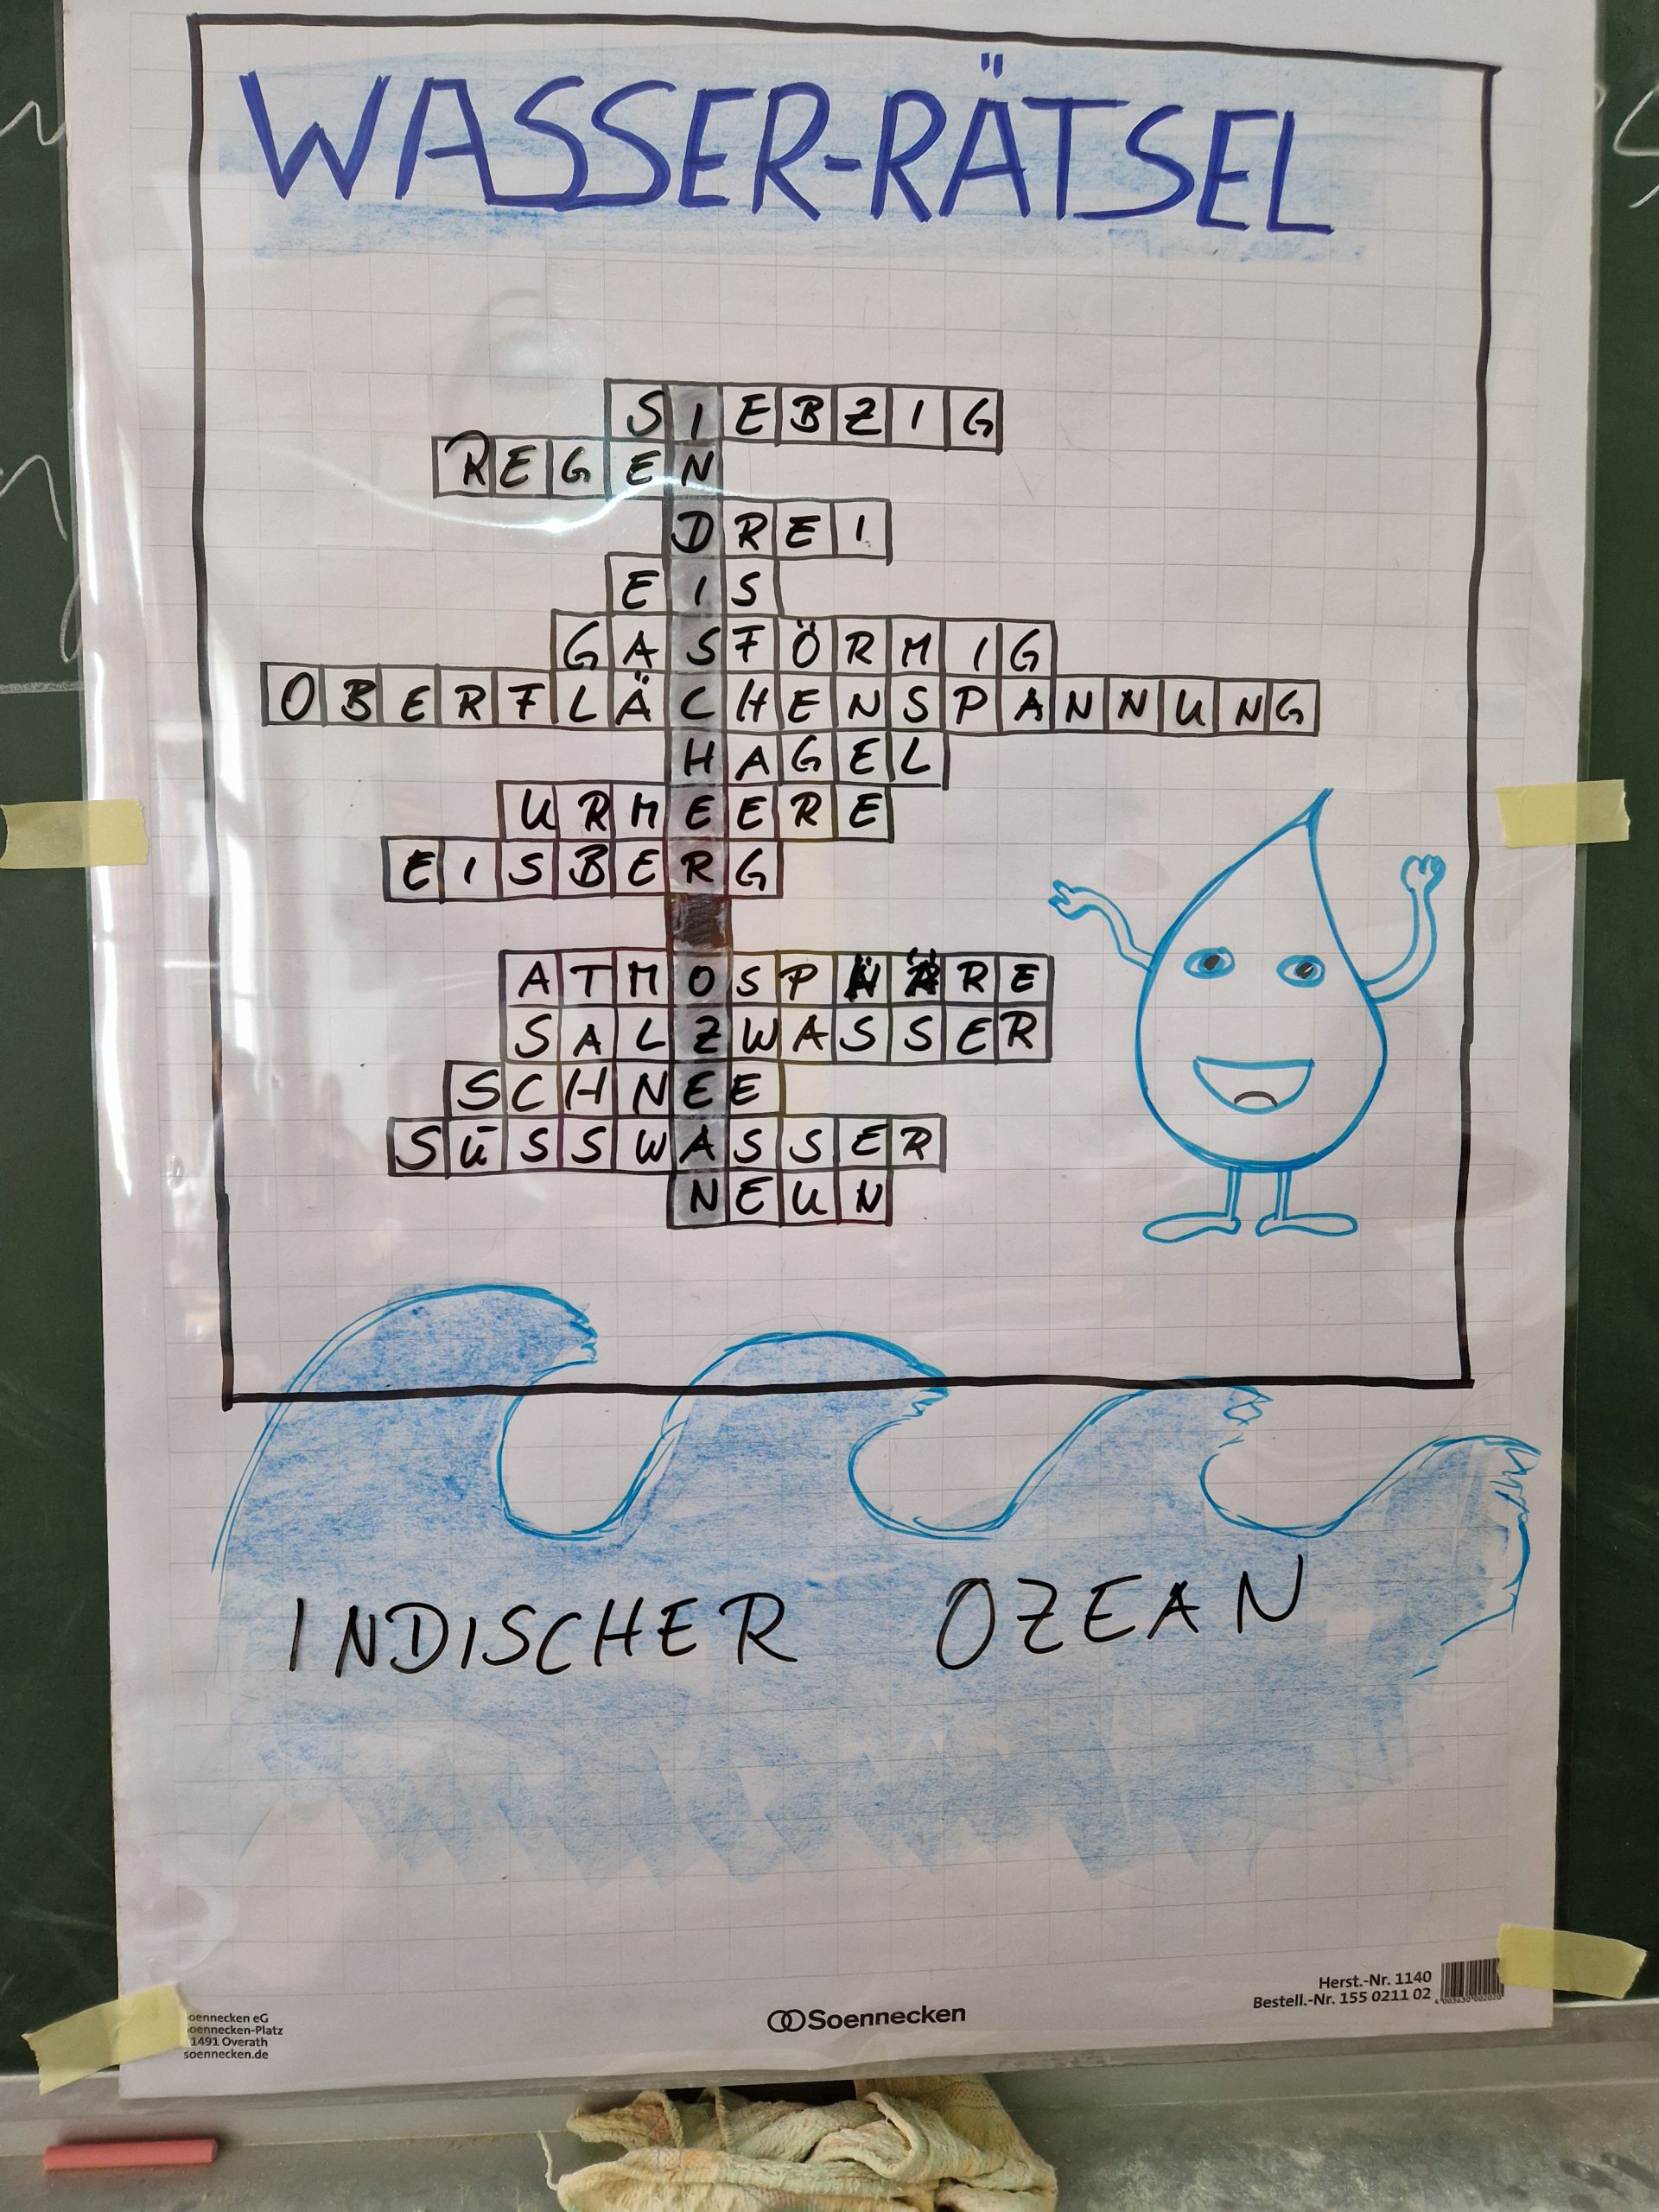 WASSER-RÄTSEL
SIEBZIG
REGEN
DREI
EIS
GASFÖRMIG
OBERFLÄCHENSPANNUNG
HAGEL
URMEERE
EISBERG
ATMOSPHÄRE
SALZWASSER
SCHNEE
SÜSSWASSER
NEUN
INDISCHER OZEAN
Herst.-Nr. 1140
Bestell.-Nr. 155 0211 02
Soennecken
oennecken eG
oennecken-Platz
1491 Overath
soennecken.de